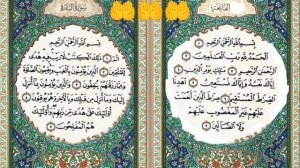 الفَاتِحَة
بِسْمِ اللَّهِ الرَّحْمَٰنِ الرَّحِيمِ
الْحَمْدُ لِلَّهِ رَبِّ الْعَٰلَمِينَ
الرَّحْمَٰنِ الرَّحِيمِ مَٰلِكِ يَوْمِ الدِّينِ
إِيَّاكَ نَعْبُدُ وَإِيَّاكَ نَسْتَعِينُ اهْدِنَا
الصِّرَٰطَ الْمُسْتَقِيمَ صِرَٰطَ الَّذِينَ أَنْعَمْتَ
عَلَيْهِمْ غَيْرِ الْمَغْضُوبِ عَلَيْهِمْ
وَلَا الضَّآلِّينَ
سُورَةُ الْبَقَرَةِ
بِسْمِ اللَّهِ الرَّحْمَٰنِ الرَّحِيمِ
الٓمٓ ذَٰلِكَ الْكِتَٰبُ لَا رَيْبَ فِيهِ هُدًى
لِلْمُتَّقِينَ الَّذِينَ يُؤْمِنُونَ بِالْغَيْبِ وَيُقِيمُونَ الصَّلَوٰةَ
وَمِمَّا رَزَقْنَٰهُمْ يُنْفِقُونَ وَالَّذِينَ يُؤْمِنُونَ بِمَآ أُنْزِلَ
إِلَيْكَ وَمَآ أُنْزِلَ مِنْ قَبْلِكَ وَبِالْآخِرَةِ هُمْ يُوقِنُونَ
أُولَٰٓئِكَ عَلَىٰ هُدًى مِنْ رَبِّهِمْ وَأُولَٰٓئِكَ
هُمُ الْمُفْلِحُونَ